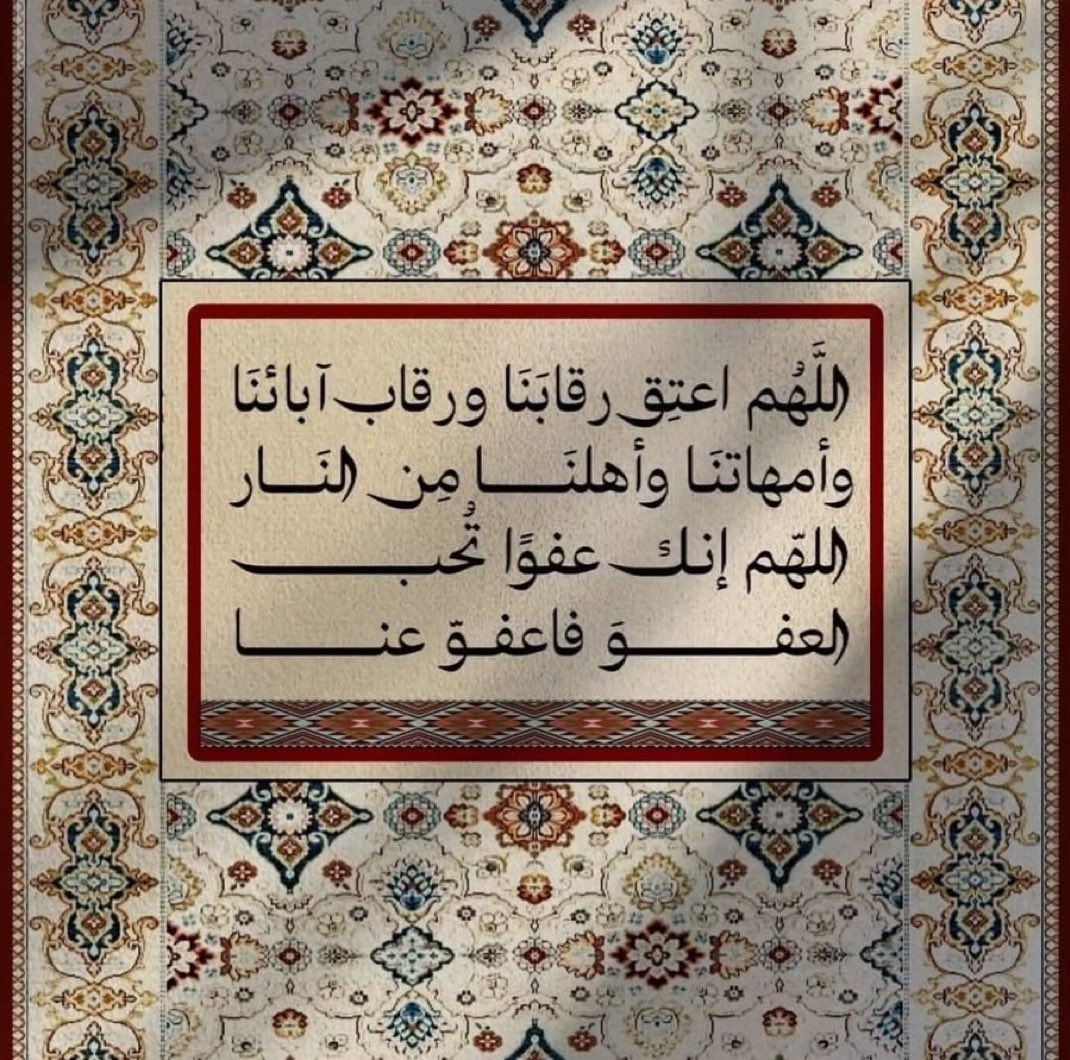 اللَّهُم اعتِق رقابَنَا ورقاب آبائنَا
وأمهاتنَا وأهلنَـــا مِن النَـار
اللهّم إنك عفوًا تُحب
العفــوَ فاعفـوّ عنــا